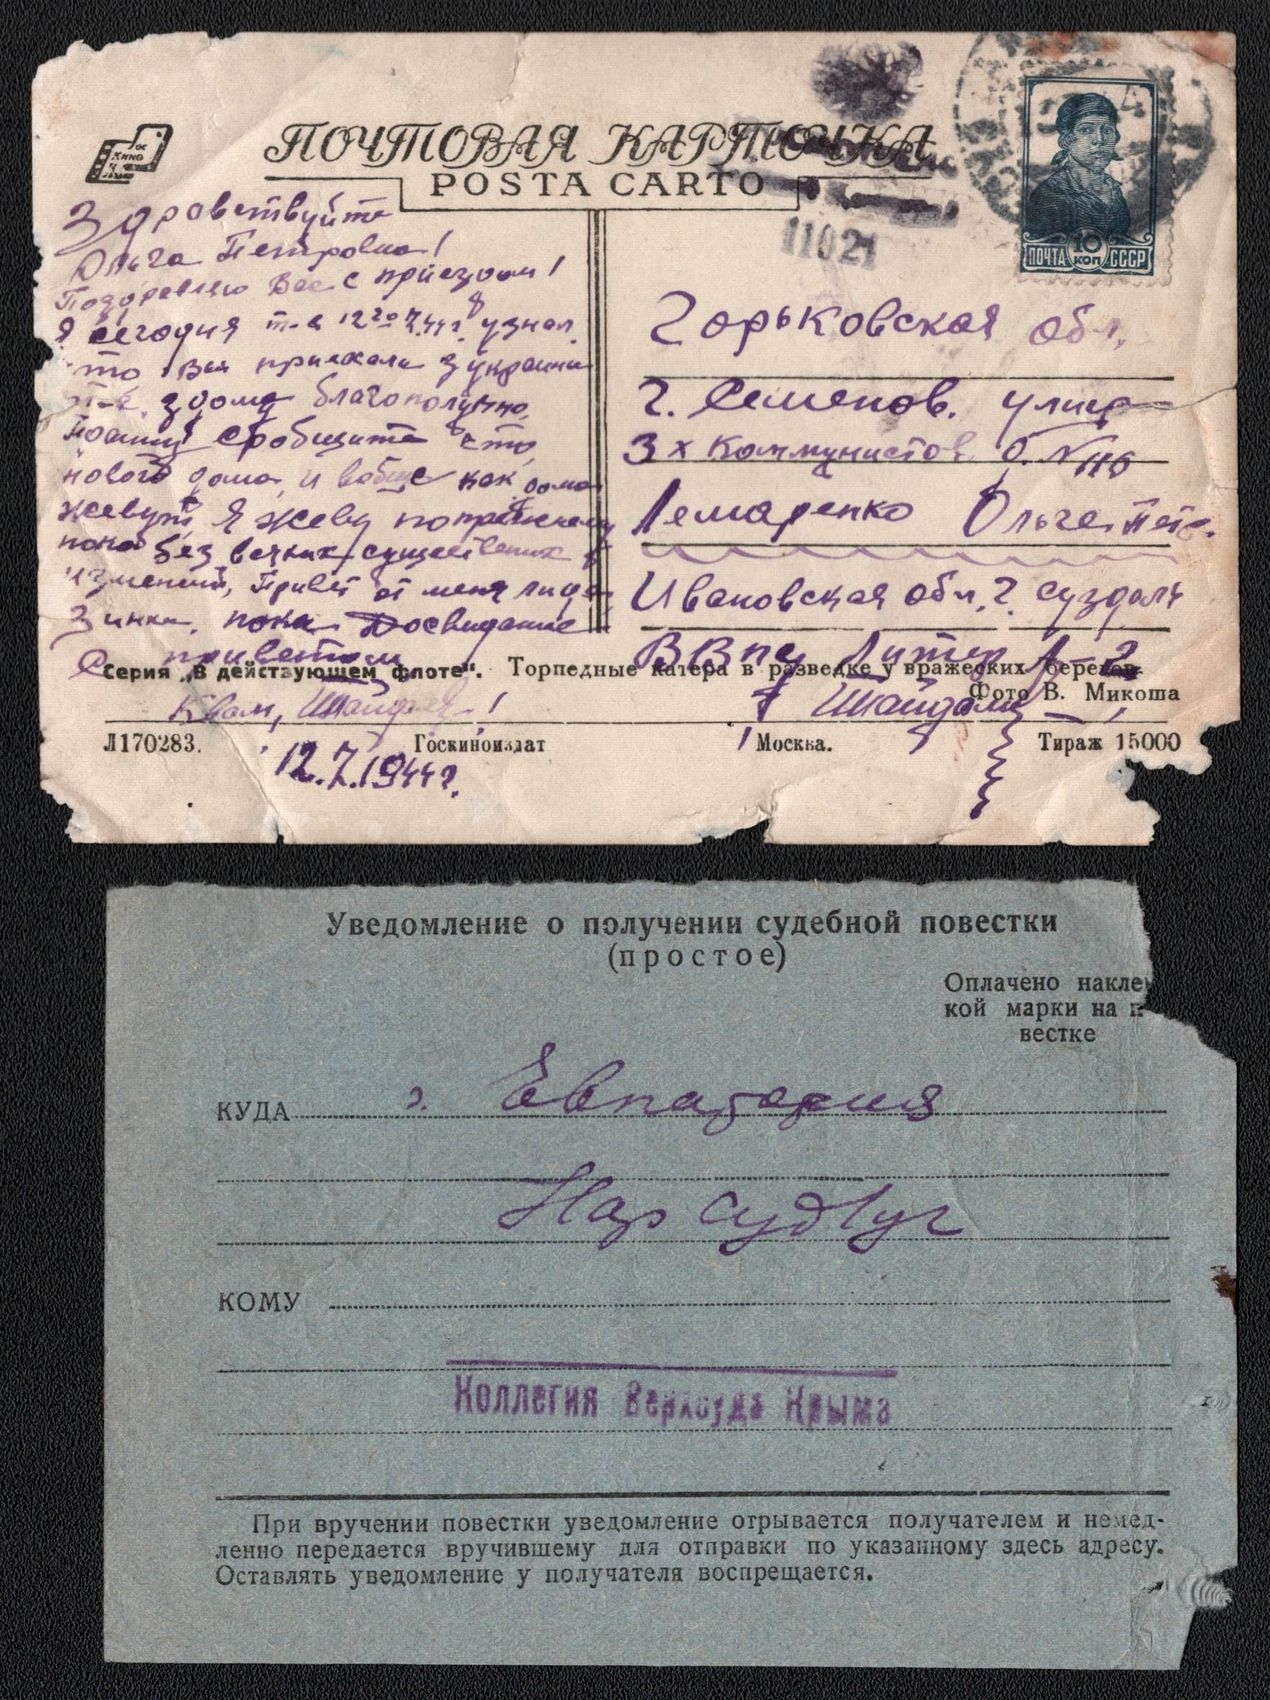 ПОЧТОВАЯ КАРТОЧКА
POSTA CARTO
11021
ПОЧТА 10 КОП СССР
Здравствуйте
Ольга Петровна!
Поздоревлею Вас с приездом!
Я сегодня т-е 12 го 7.44 г узнал
что Вы приехали з украини
т-е. з дому благополучно,
сообщите что
нового дома, и вобще как дома
живут, Я живу
пока без всяких существених
изменений, Привет от меня Лиде
Зинке, пока Досвидание
С приветом
К Вам, Шайдач!
12.7.1944 г.
Горьковская обл,
г. Семенов. улица
3х Коммунистов д. N 116
Лемаренко Ольге Петр.
Ивановская обл, г. Суздаль
ВВПУ Литер А-2
Серия „В действующем флоте“. Торпедные катера в разведке у вражеских берегов
Фото В. Микоша
Л170283. Госкиноиздат Москва. Тираж 15000
Уведомление о получении судебной повестки
(простое)
Оплачено наклей
кой марки на п
вестке
КУДА г. Евпатория
Нар суд 1 уч
КОМУ
Коллегия Верхсуда Крыма
При вручении повестки уведомление отрывается получателем и немед-
ленно передается вручившему для отправки по указанному здесь адресу.
Оставлять уведомление у получателя воспрещается.